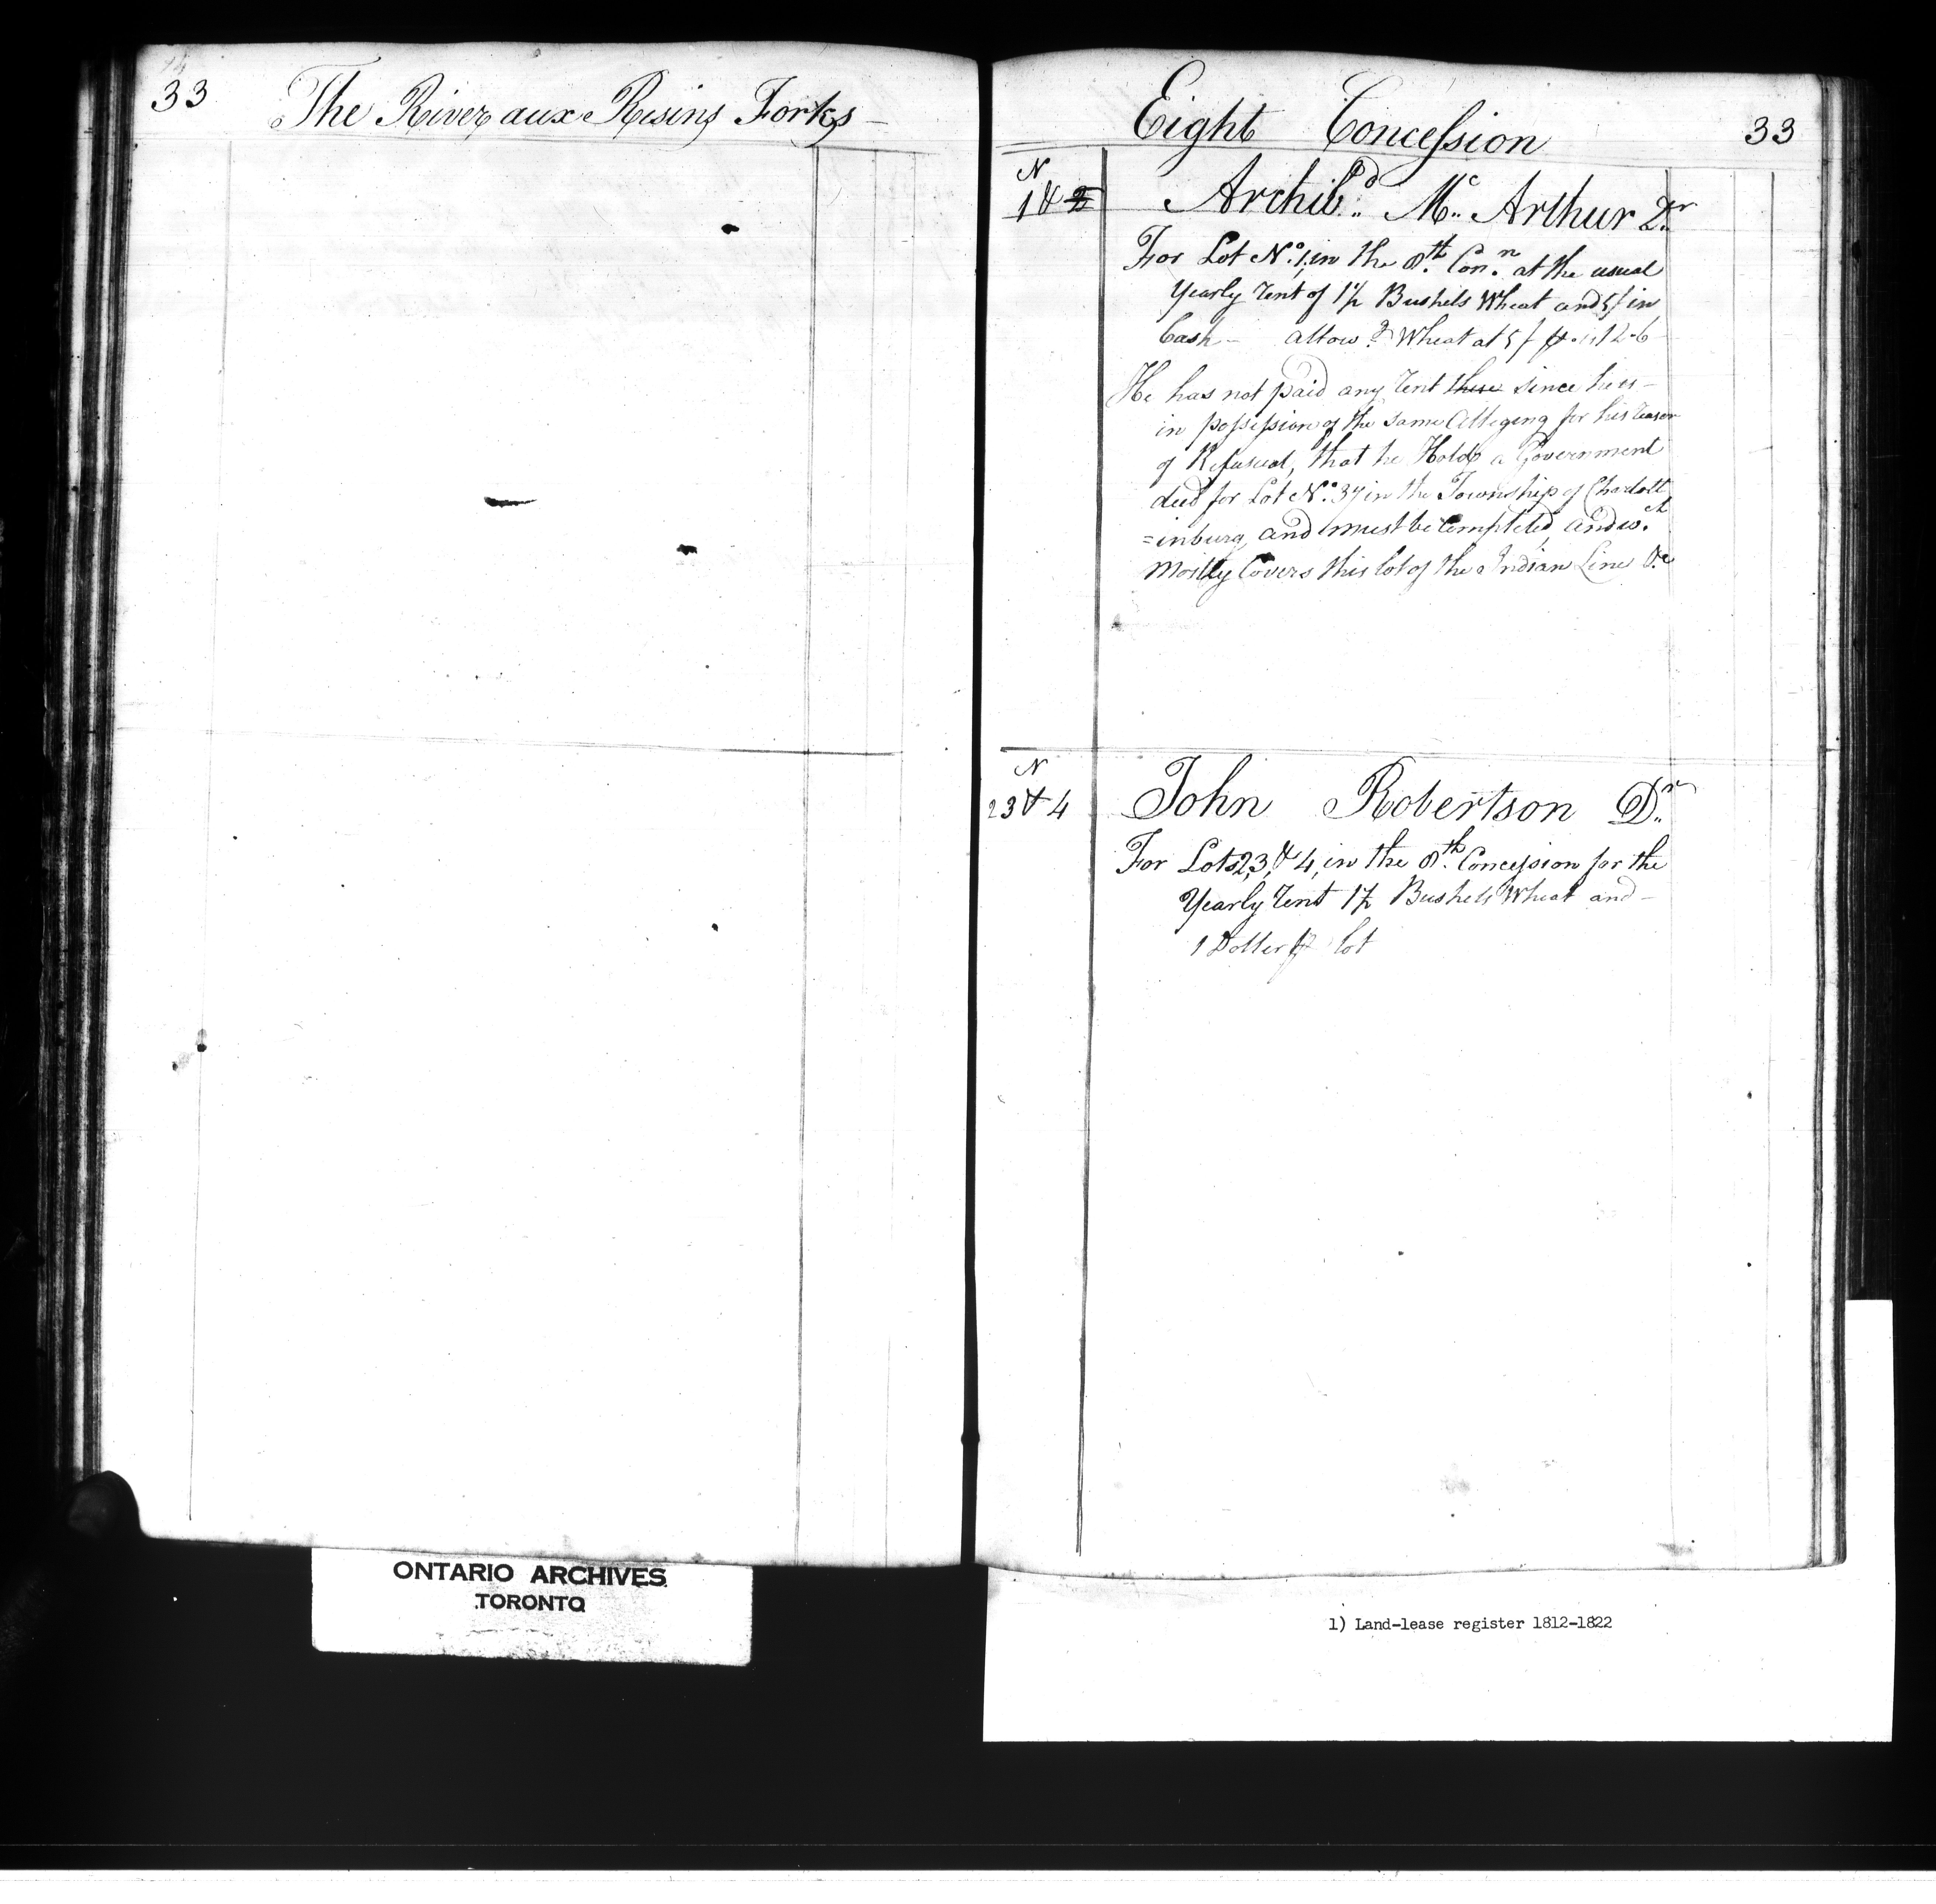 33 The River aux Risins Forks —
Eight Concession 33
N
1 & 2 Archib.d Mc Arthur Dr
For Lot No. 1, in the 8th Con.n at the usual
Yearly rent of 1½ Bushels Wheat and 5/ in
Cash — allow.g Wheat at 5/ 12-6
He has not paid any rent these since he is —
in possession of the same Alleging for his reason
of Refuseal, that he Holds a Government
deed for Lot No. 37 in the Township of Charlott
=inburg, and must be Completed, and w.ch
mostly Covers this lot of the Indian Line &c
N
2 3 & 4 John Robertson Dr
For Lots 2, 3, & 4, in the 8th Concession for the
Yearly rent 1½ Bushels Wheat and —
1 Doller ⅌ lot
ONTARIO ARCHIVES
TORONTO
1) Land-lease register 1812-1822